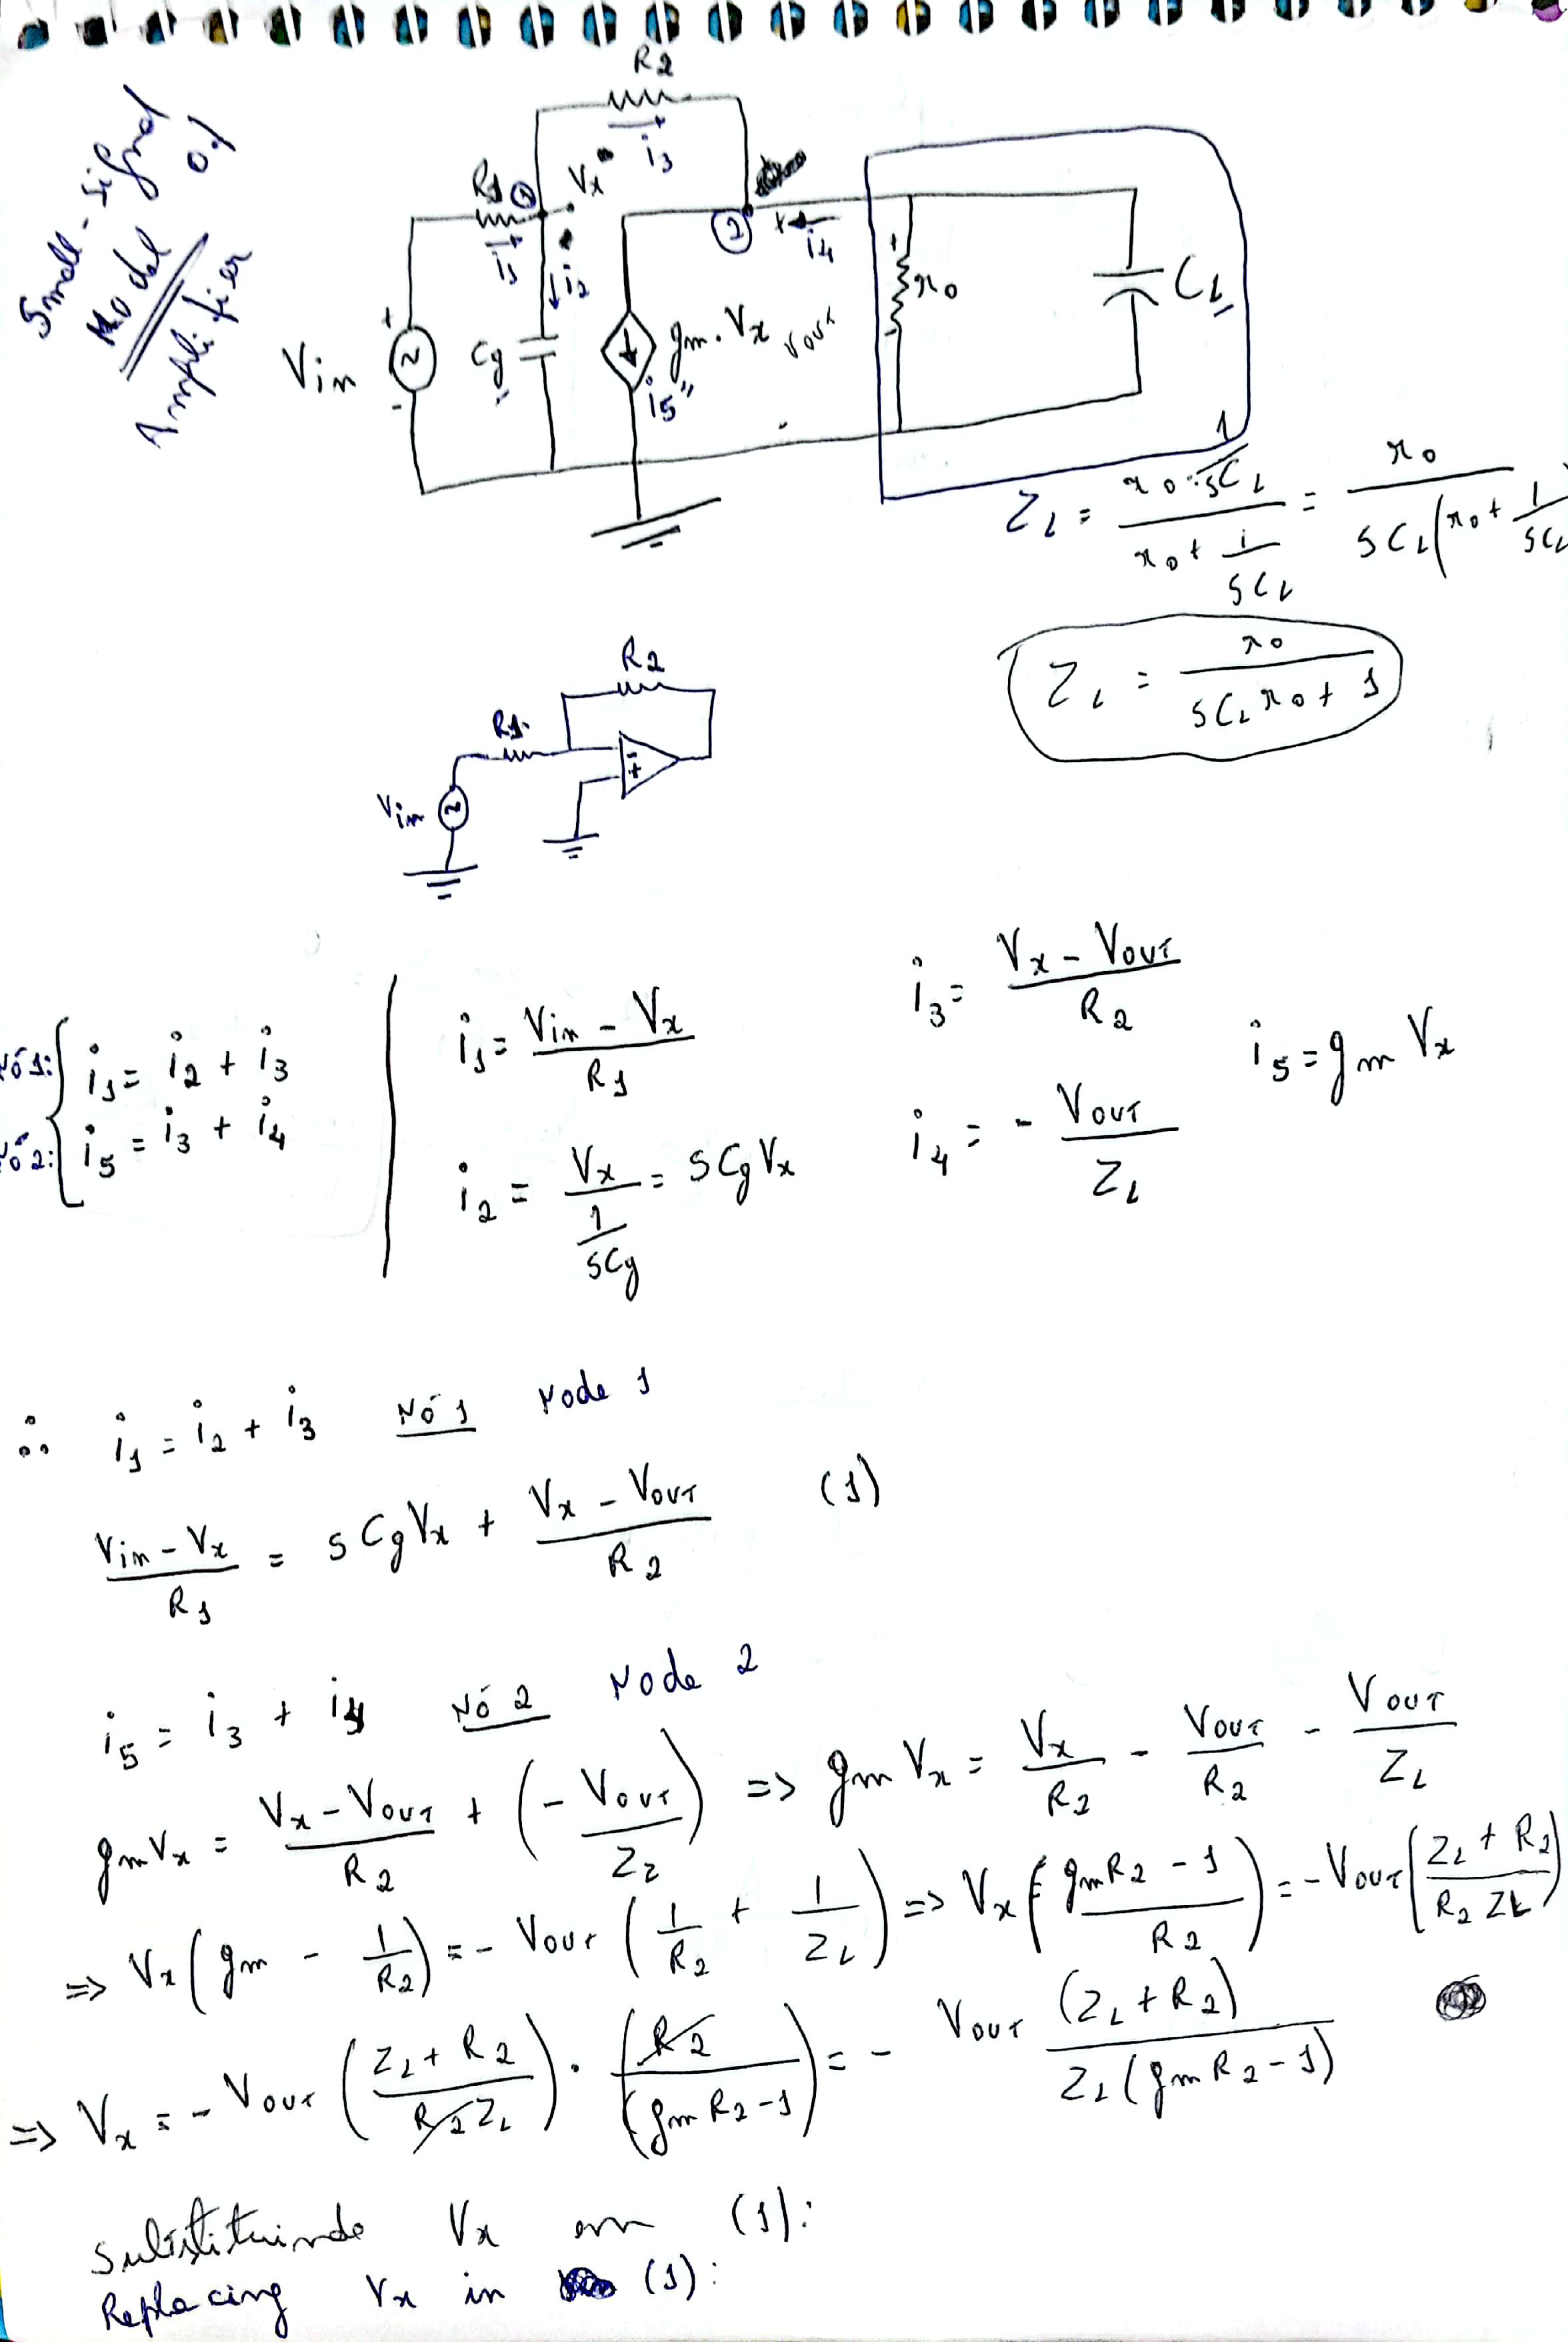 Small-signal
Model of
Amplifier
R2
i3
R1 1 Vx
i1
i2
2
i4
Vin + -
Cg
gm.Vx
i5
Vout
+ ro -
CL
ZL = (ro · 1/sCL) / (ro + 1/sCL) = ro / (sCL(ro + 1/sCL
ZL = ro / (sCL ro + 1)
R2
R1
Vin
- +
Nó 1: i1 = i2 + i3
Nó 2: i5 = i3 + i4
i1 = (Vin - Vx) / R1
i2 = Vx / (1/sCg) = sCgVx
i3 = (Vx - Vout) / R2
i4 = - Vout / ZL
i5 = gm Vx
∴ i1 = i2 + i3 Nó 1 Node 1
(Vin - Vx) / R1 = sCgVx + (Vx - Vout) / R2 (1)
i5 = i3 + i4 Nó 2 Node 2
gmVx = (Vx - Vout) / R2 + (- Vout / ZL) => gm Vx = Vx / R2 - Vout / R2 - Vout / ZL
=> Vx (gm - 1/R2) = - Vout (1/R2 + 1/ZL) => Vx ((gmR2 - 1) / R2) = - Vout ((ZL + R2) / (R2 ZL))
=> Vx = - Vout ((ZL + R2) / (R2 ZL)) · (R2 / (gm R2 - 1)) = - Vout (ZL + R2) / (ZL (gm R2 - 1))
Substituindo Vx em (1):
Replacing Vx in (1):